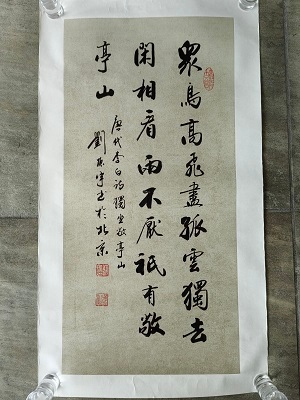 衆鳥高飛盡孤雲獨去
閑相看兩不厭祇有敬
亭山
唐代李白詩獨坐敬亭山
劉宇书於北京